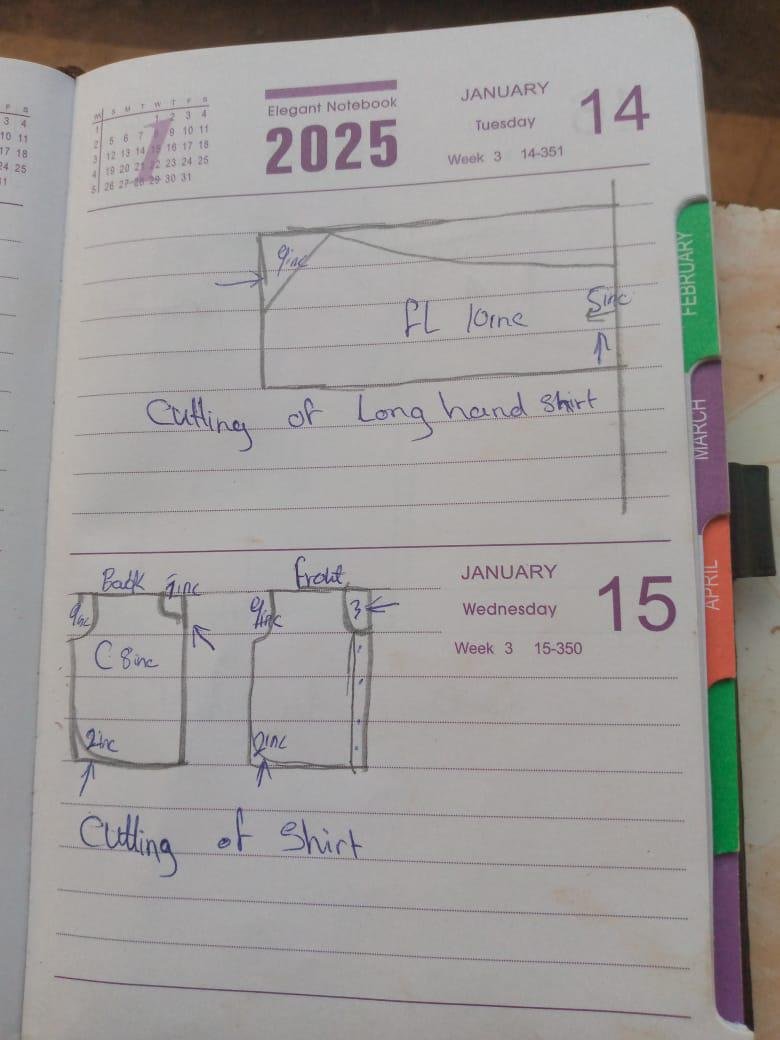 F S
3 4
10 11
17 18
24 25
W S M T W T F S
1 1 2 3 4
2 5 6 7 8 9 10 11
3 12 13 14 15 16 17 18
4 19 20 21 22 23 24 25
5 26 27 28 29 30 31
1
Elegant Notebook
2025
JANUARY
Tuesday
Week 3 14-351
14
9inc
fL 10inc
5inc
Cutting of Long hand shirt
FEBRUARY
MARCH
APRIL
JANUARY
Wednesday
Week 3 15-350
15
Back
Front
9inc
3
C 8inc
2inc
2inc
Cutting of Shirt